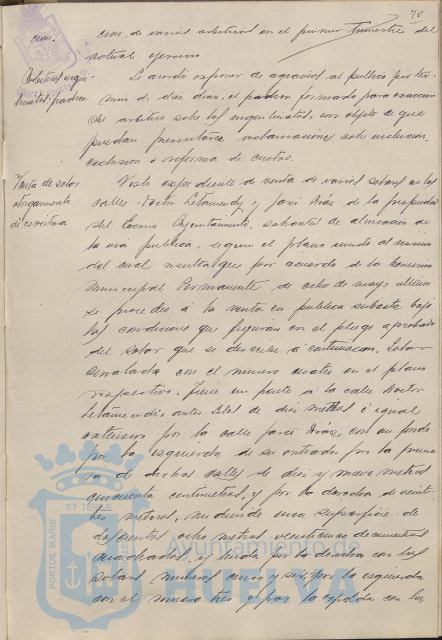 70
cion.
cion de varios arbitrios en el primer trimestre del
actual ejercicio
Arbitrios inqui-
linatos: padron.
Se acordó exponer de agravios al público por tér-
mino de diez dias, el padron formado para exaccion
del arbitrio sobre los inquilinatos, con objeto de que
puedan presentarse reclamaciones sobre inclusion,
exclusion o reforma de cuotas.
Venta de solar
otorgamiento
de escritura
Visto expediente de venta de varios solares en las
calles Doctor Letamendy y José Diaz de la propiedad
del Excmo Ayuntamiento, sobrantes de alineacion de
la via pública, segun el plano unido al mismo
del cual resulta que por acuerdo de la Comision
Municipal Permanente de ocho de mayo ultimo
se procedió a la venta en publica subasta bajo
las condiciones que figuran en el pliego aprobado
del solar que se describe a continuacion, Solar
señalado con el numero cuatro en el plano
respectivo. Tiene un frente a la calle Doctor
Letamendi, antes de diez metros é igual
por la calle José Diaz, con un fondo
por la izquierda de su entrada por la primera
de dichas calles de diez y nueve metros
cincuenta centimetros, y por la derecha de veinti-
tres metros, midiendo una superficie de
doscientos ocho metros veintiuno decimetros
cuadrados, y linda por la derecha con los
solares numeros cinco y seis, por la izquierda
con el numero tres y por la espalda con la
PORTUS MARIS ET TERRAE
Ayuntamiento de
HUELVA